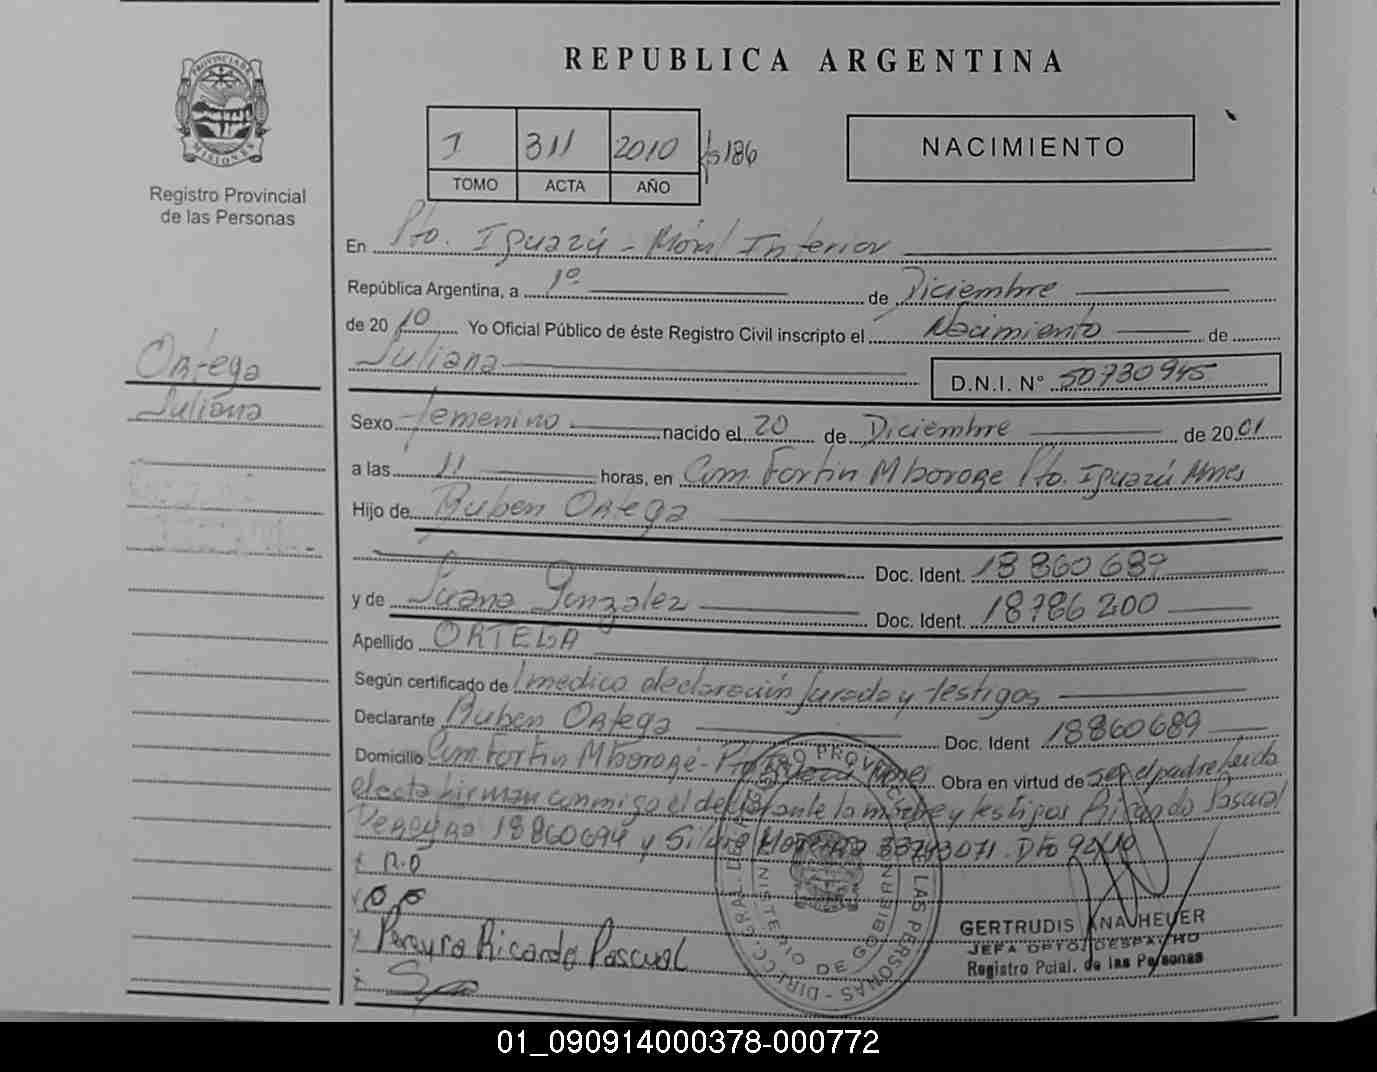 PROVINCIA DE
MISIONES
Registro Provincial
de las Personas
Ortega
Juliana
REPUBLICA ARGENTINA
I 311 2010 fs 186
TOMO ACTA AÑO
NACIMIENTO
En Pto. Iguazú - Móvil Interior
República Argentina, a 1º de Diciembre
de 2010 Yo Oficial Público de éste Registro Civil inscripto el Nacimiento de
Juliana
D.N.I. N° 50730945
Sexo femenino nacido el 20 de Diciembre de 2001
a las 11 horas, en Com. Fortin Mborore Pto. Iguazú Mnes
Hijo de Ruben Ortega
Doc. Ident. 18860689
y de Juana Gonzalez Doc. Ident. 18786200
Apellido ORTEGA
Según certificado de medico declaración Jurada y testigos
Declarante Ruben Ortega Doc. Ident 18860689
Domicilio Com. Fortin Mbororé - Pto Mnes Obra en virtud de ser el padre Leida
el acta firman conmigo el declarante la madre y testigos Ricardo Pascual
Pereyra 18860694 y 33743071. Dto 90/10
x R.O
x
x Pereyra Ricardo Pascual
x
DE GOBIERNO
LAS PERSONAS
GERTRUDIS ANA HEUER
JEFA DPTO. DESPACHO
Registro Pcial. de las Personas
01_090914000378-000772